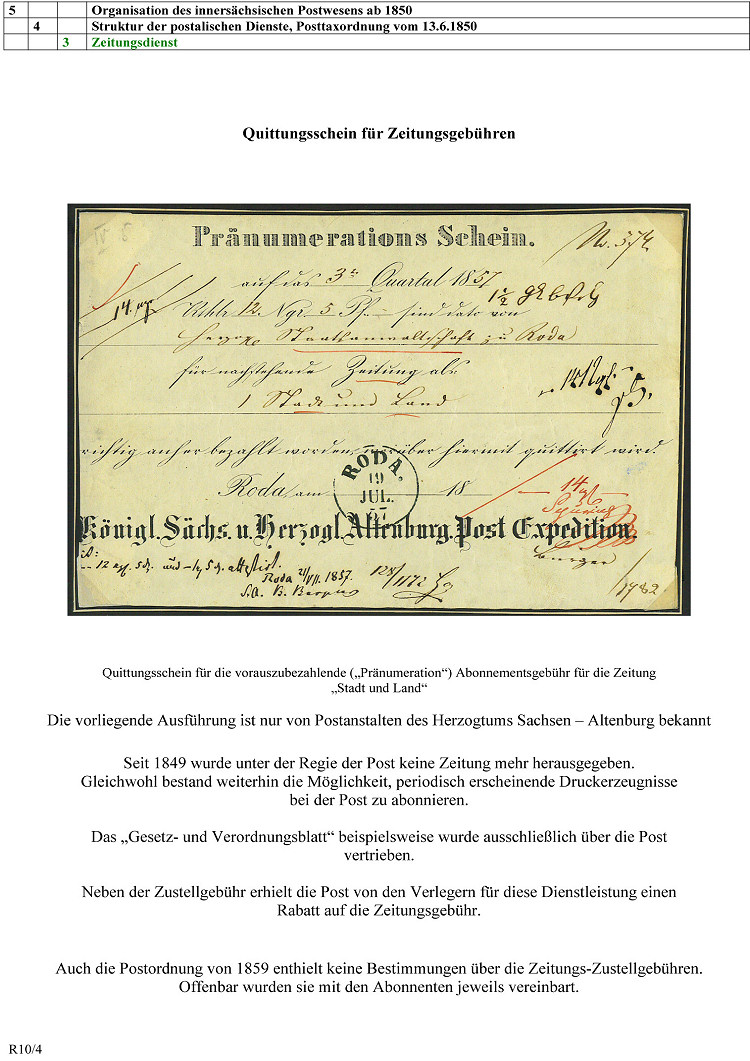 5 Organisation des innersächsischen Postwesens ab 1850
4 Struktur der postalischen Dienste, Posttaxordnung vom 13.6.1850
3 Zeitungsdienst
Quittungsschein für Zeitungsgebühren
Pränumerations Schein.
No. 574
auf das 3tes Quartal 1857
14.
Rthlr 12. Ngr. 5 Pf. sind dato von
Staatsanwaltschaft zu Roda
für nachstehende Zeitung als
1 Stadt und Land
richtig anher bezahlt worden, worüber hiermit quittirt wird.
RODA.
19
JUL.
57
Roda, am 18
14
Königl. Sächs. u. Herzogl. Altenburg. Post Expedition.
Roda 21/VII. 1857.
Quittungsschein für die vorauszubezahlende („Pränumeration“) Abonnementsgebühr für die Zeitung
„Stadt und Land“
Die vorliegende Ausführung ist nur von Postanstalten des Herzogtums Sachsen – Altenburg bekannt
Seit 1849 wurde unter der Regie der Post keine Zeitung mehr herausgegeben.
Gleichwohl bestand weiterhin die Möglichkeit, periodisch erscheinende Druckerzeugnisse
bei der Post zu abonnieren.
Das „Gesetz- und Verordnungsblatt“ beispielsweise wurde ausschließlich über die Post
vertrieben.
Neben der Zustellgebühr erhielt die Post von den Verlegern für diese Dienstleistung einen
Rabatt auf die Zeitungsgebühr.
Auch die Postordnung von 1859 enthielt keine Bestimmungen über die Zeitungs-Zustellgebühren.
Offenbar wurden sie mit den Abonnenten jeweils vereinbart.
R10/4